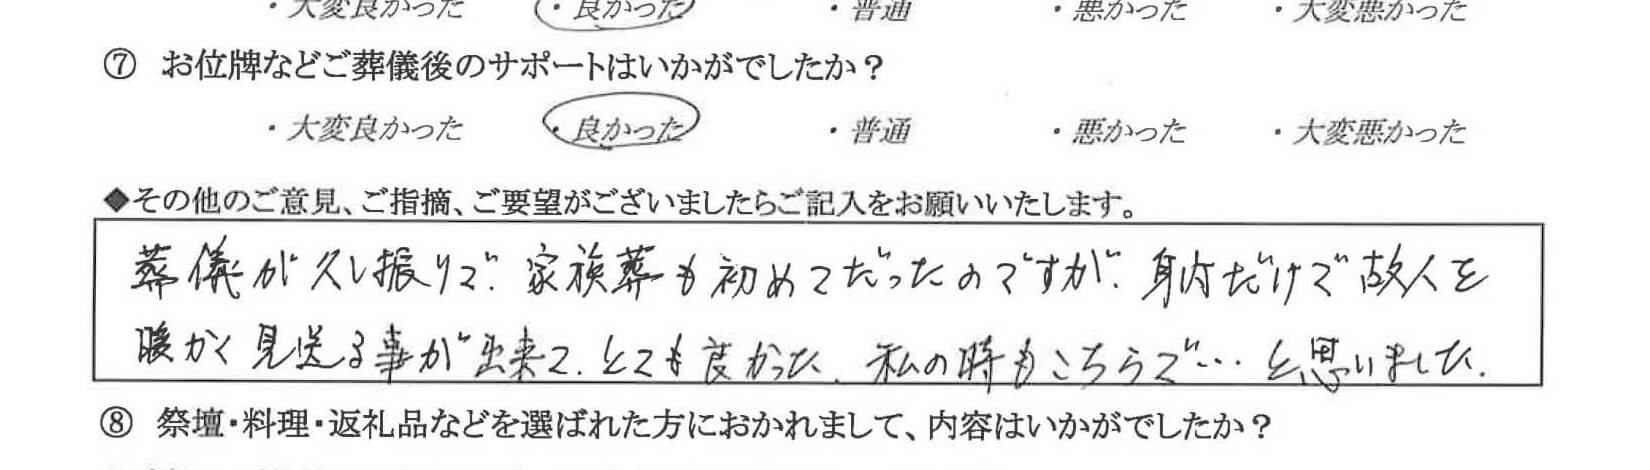 ・大変良かった ・良かった ・普通 ・悪かった ・大変悪かった
⑦ お位牌などご葬儀後のサポートはいかがでしたか？
・大変良かった ・良かった ・普通 ・悪かった ・大変悪かった
◆その他のご意見、ご指摘、ご要望がございましたらご記入をお願いいたします。
葬儀が久し振りで、家族葬も初めてだったのですが、身内だけで故人を
暖かく見送る事が出来て、とても良かった、私の時もこちらで…と思いました。
⑧ 祭壇・料理・返礼品などを選ばれた方におかれまして、内容はいかがでしたか？